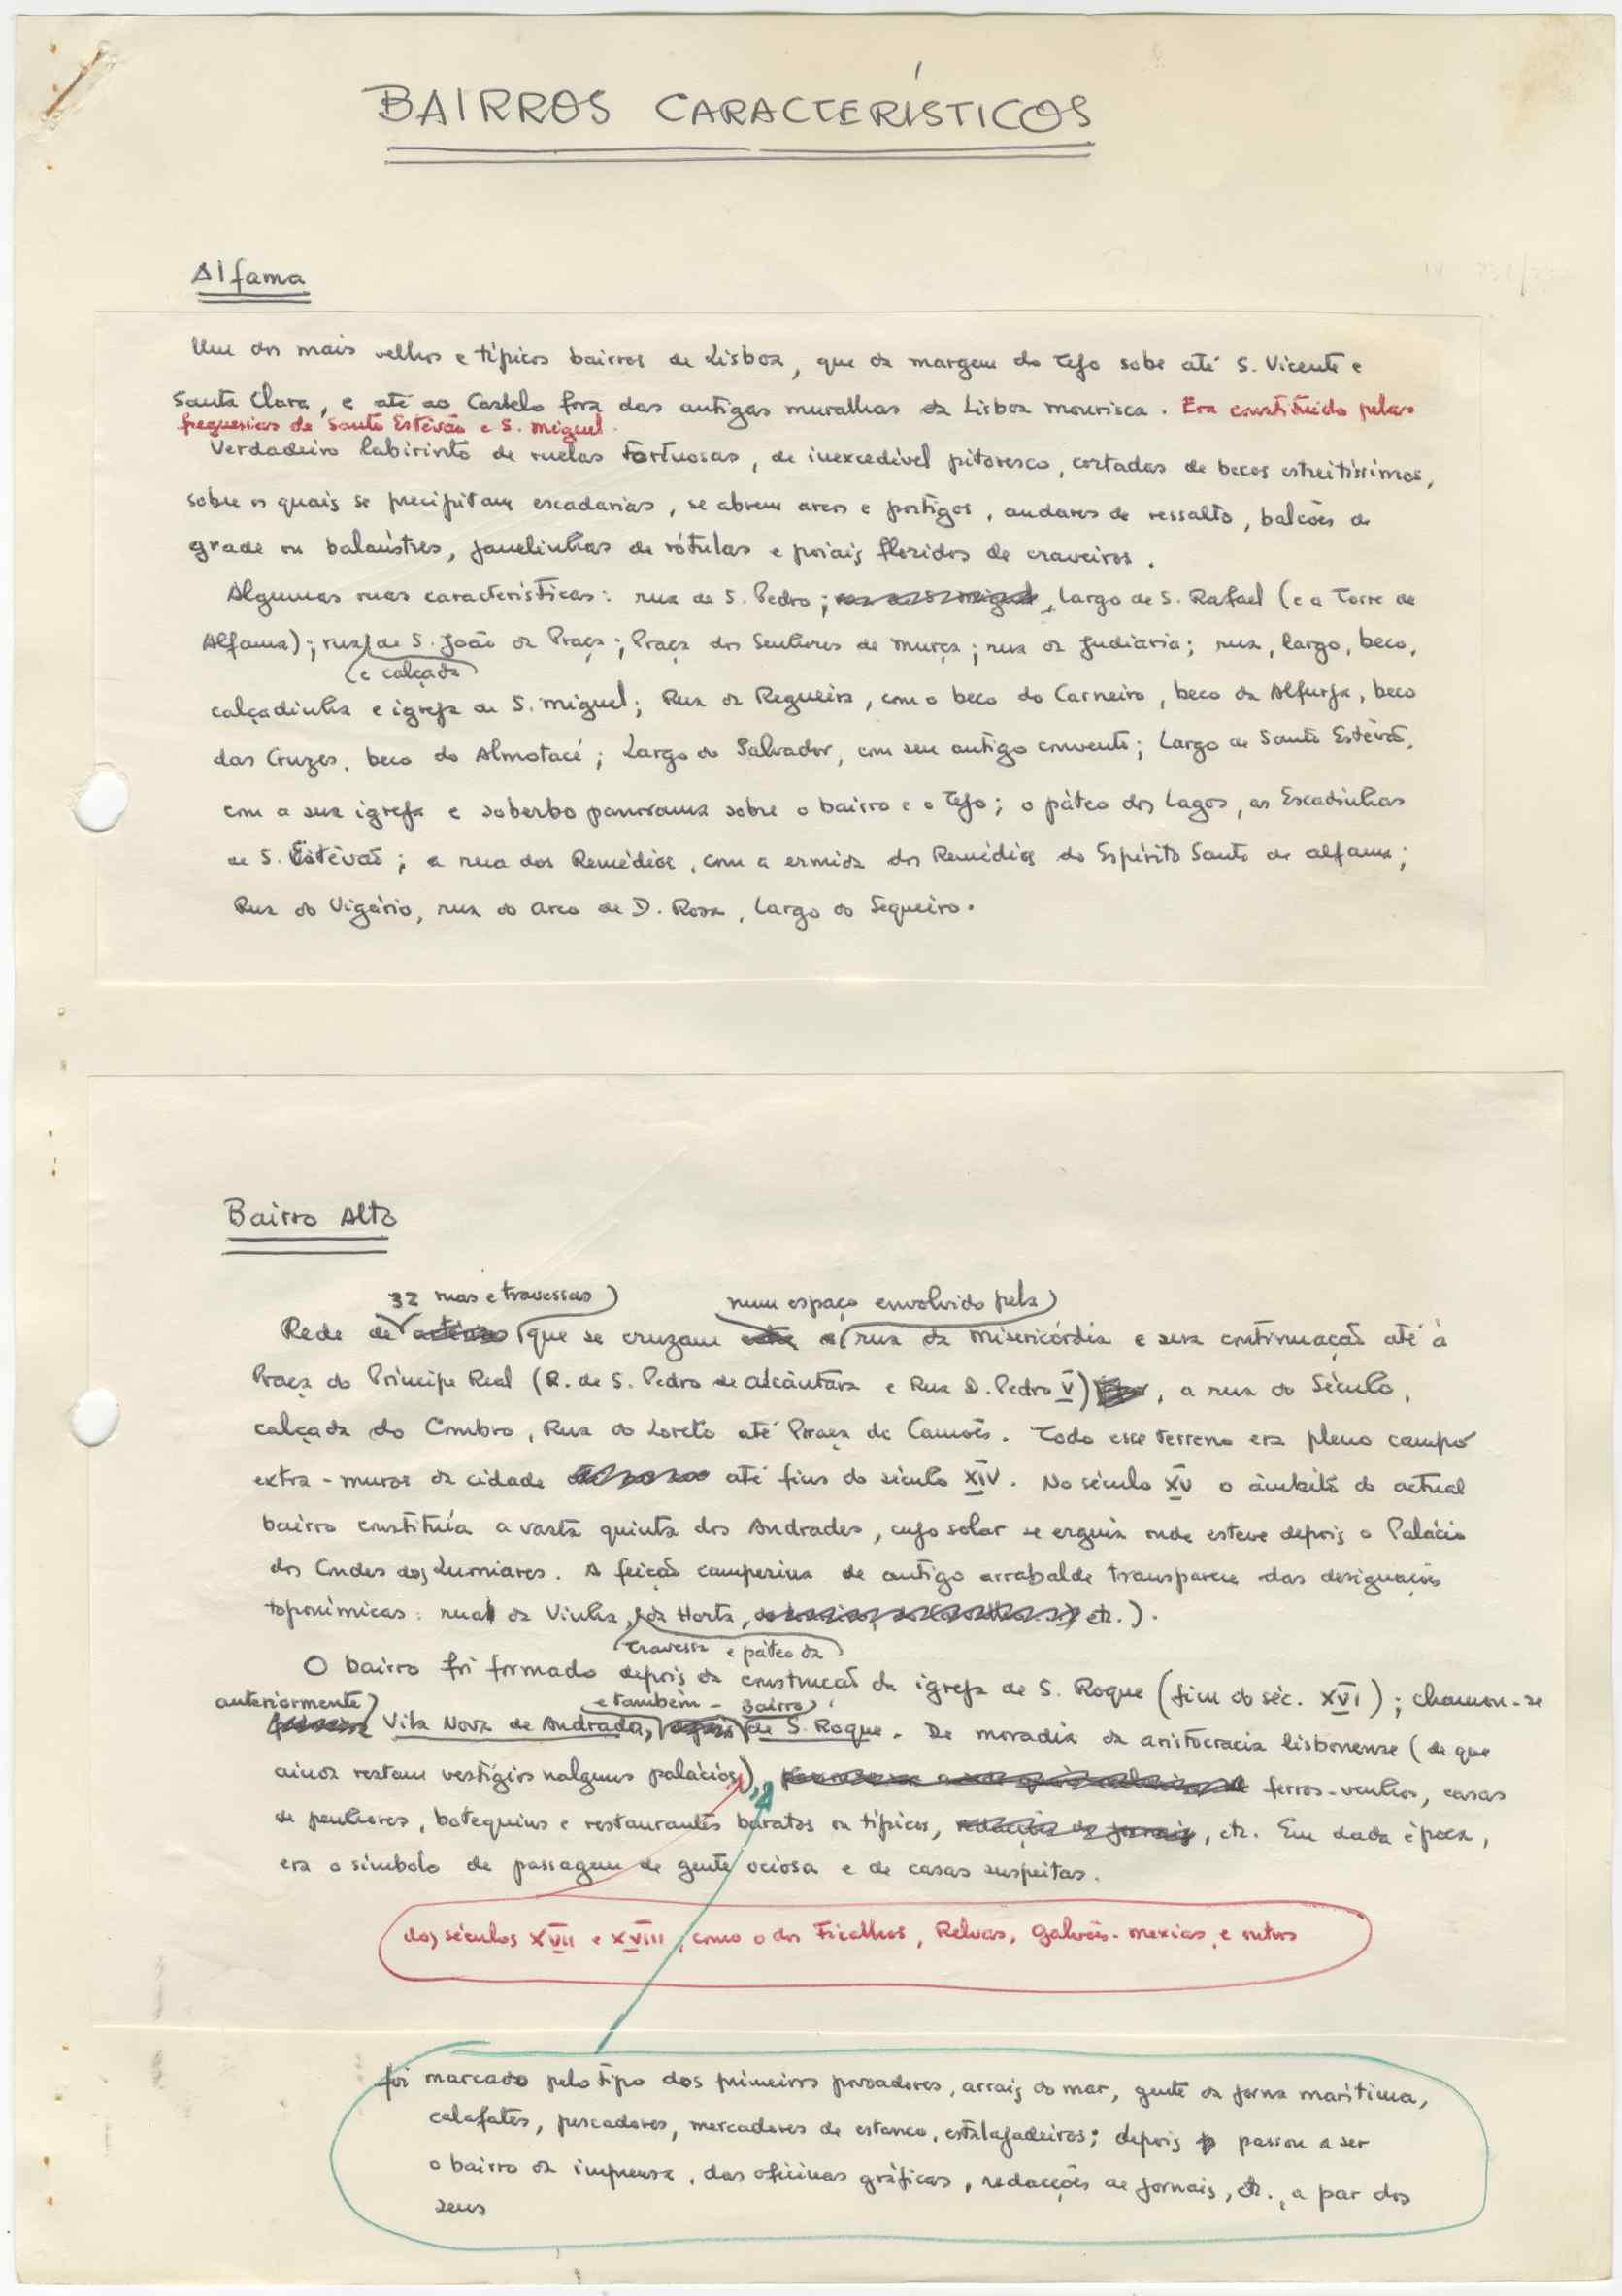 BAIRROS CARACTERÍSTICOS
Alfama
Um dos mais velhos e típicos bairros de Lisboa, que da margem do Tejo sobe até S. Vicente e
Santa Clara, e até ao Castelo fora das antigas muralhas da Lisboa mourisca. Era constituído pelas
freguesias de Santo Estêvão e S. Miguel.
Verdadeiro labirinto de ruelas tortuosas, de inexcedível pitoresco, cortadas de becos estreitíssimos,
sobre os quais se precipitam escadarias, se abrem arcos e postigos, andares de ressalto, balcões de
grade ou balaústres, janelinhas de rótulas e poiais floridos de craveiros.
Algumas ruas características: rua de S. Pedro; largo de S. Rafael (e a Torre de
Alfama); rua de S. João da Praça; Praça dos Senhores de Murça; rua da Judiaria; rua, largo, beco,
e calçada
calçadinha e igreja de S. Miguel; Rua da Regueira, com o beco do Carneiro, beco da Alfurja, beco
das Cruzes, beco do Almotacé; Largo do Salvador, com seu antigo convento; Largo de Santo Estêvão,
com a sua igreja e soberbo panorama sobre o bairro e o Tejo; o páteo dos Lagos, as Escadinhas
de S. Estêvão; a rua dos Remédios, com a ermida dos Remédios do Espírito Santo de Alfama;
Rua do Vigário, rua do Arco de D. Rosa, Largo do Sequeiro.
Bairro Alto
32 ruas e travessas num espaço envolvido pela
Rede de que se cruzam rua da Misericórdia e sua continuação até à
Praça do Príncipe Real (R. de S. Pedro de Alcântara e Rua D. Pedro V), a rua do Século,
calçada do Combro, Rua do Loreto até Praça de Camões. Todo esse terreno era pleno campo
extra-muros da cidade até fins do século XIV. No século XV o âmbito do actual
bairro constituía a vasta quinta dos Andrades, cujo solar se erguia onde esteve depois o Palácio
dos Condes dos Lumiares. A feição camperina de antigo arrabalde transparece das designações
toponímicas: rua da Vinha, da Horta, etc.).
travessa e páteo da
O bairro foi formado depois da construção da igreja de S. Roque (fim do séc. XVI); chamou-se
anteriormente e também - Bairro
Vila Nova de Andrada, de S. Roque. De moradia da aristocracia lisbonense (de que
ainda restam vestígios nalguns palácios), ferros-velhos, casas
de penhores, botequins e restaurantes baratos ou típicos, etc. Em dada época,
era o símbolo de passagem de gente ociosa e de casas suspeitas.
dos séculos XVII e XVIII, como o dos Ficalhos, Relvas, Galvão-Mexias, e outros
foi marcado pelo tipo dos primeiros povoadores, arrais do mar, gente da forna marítima,
calafates, pescadores, mercadores de estanco, estalajadeiros; depois passou a ser
o bairro da imprensa, das oficinas gráficas, redacções de jornais, etc., a par dos
seus